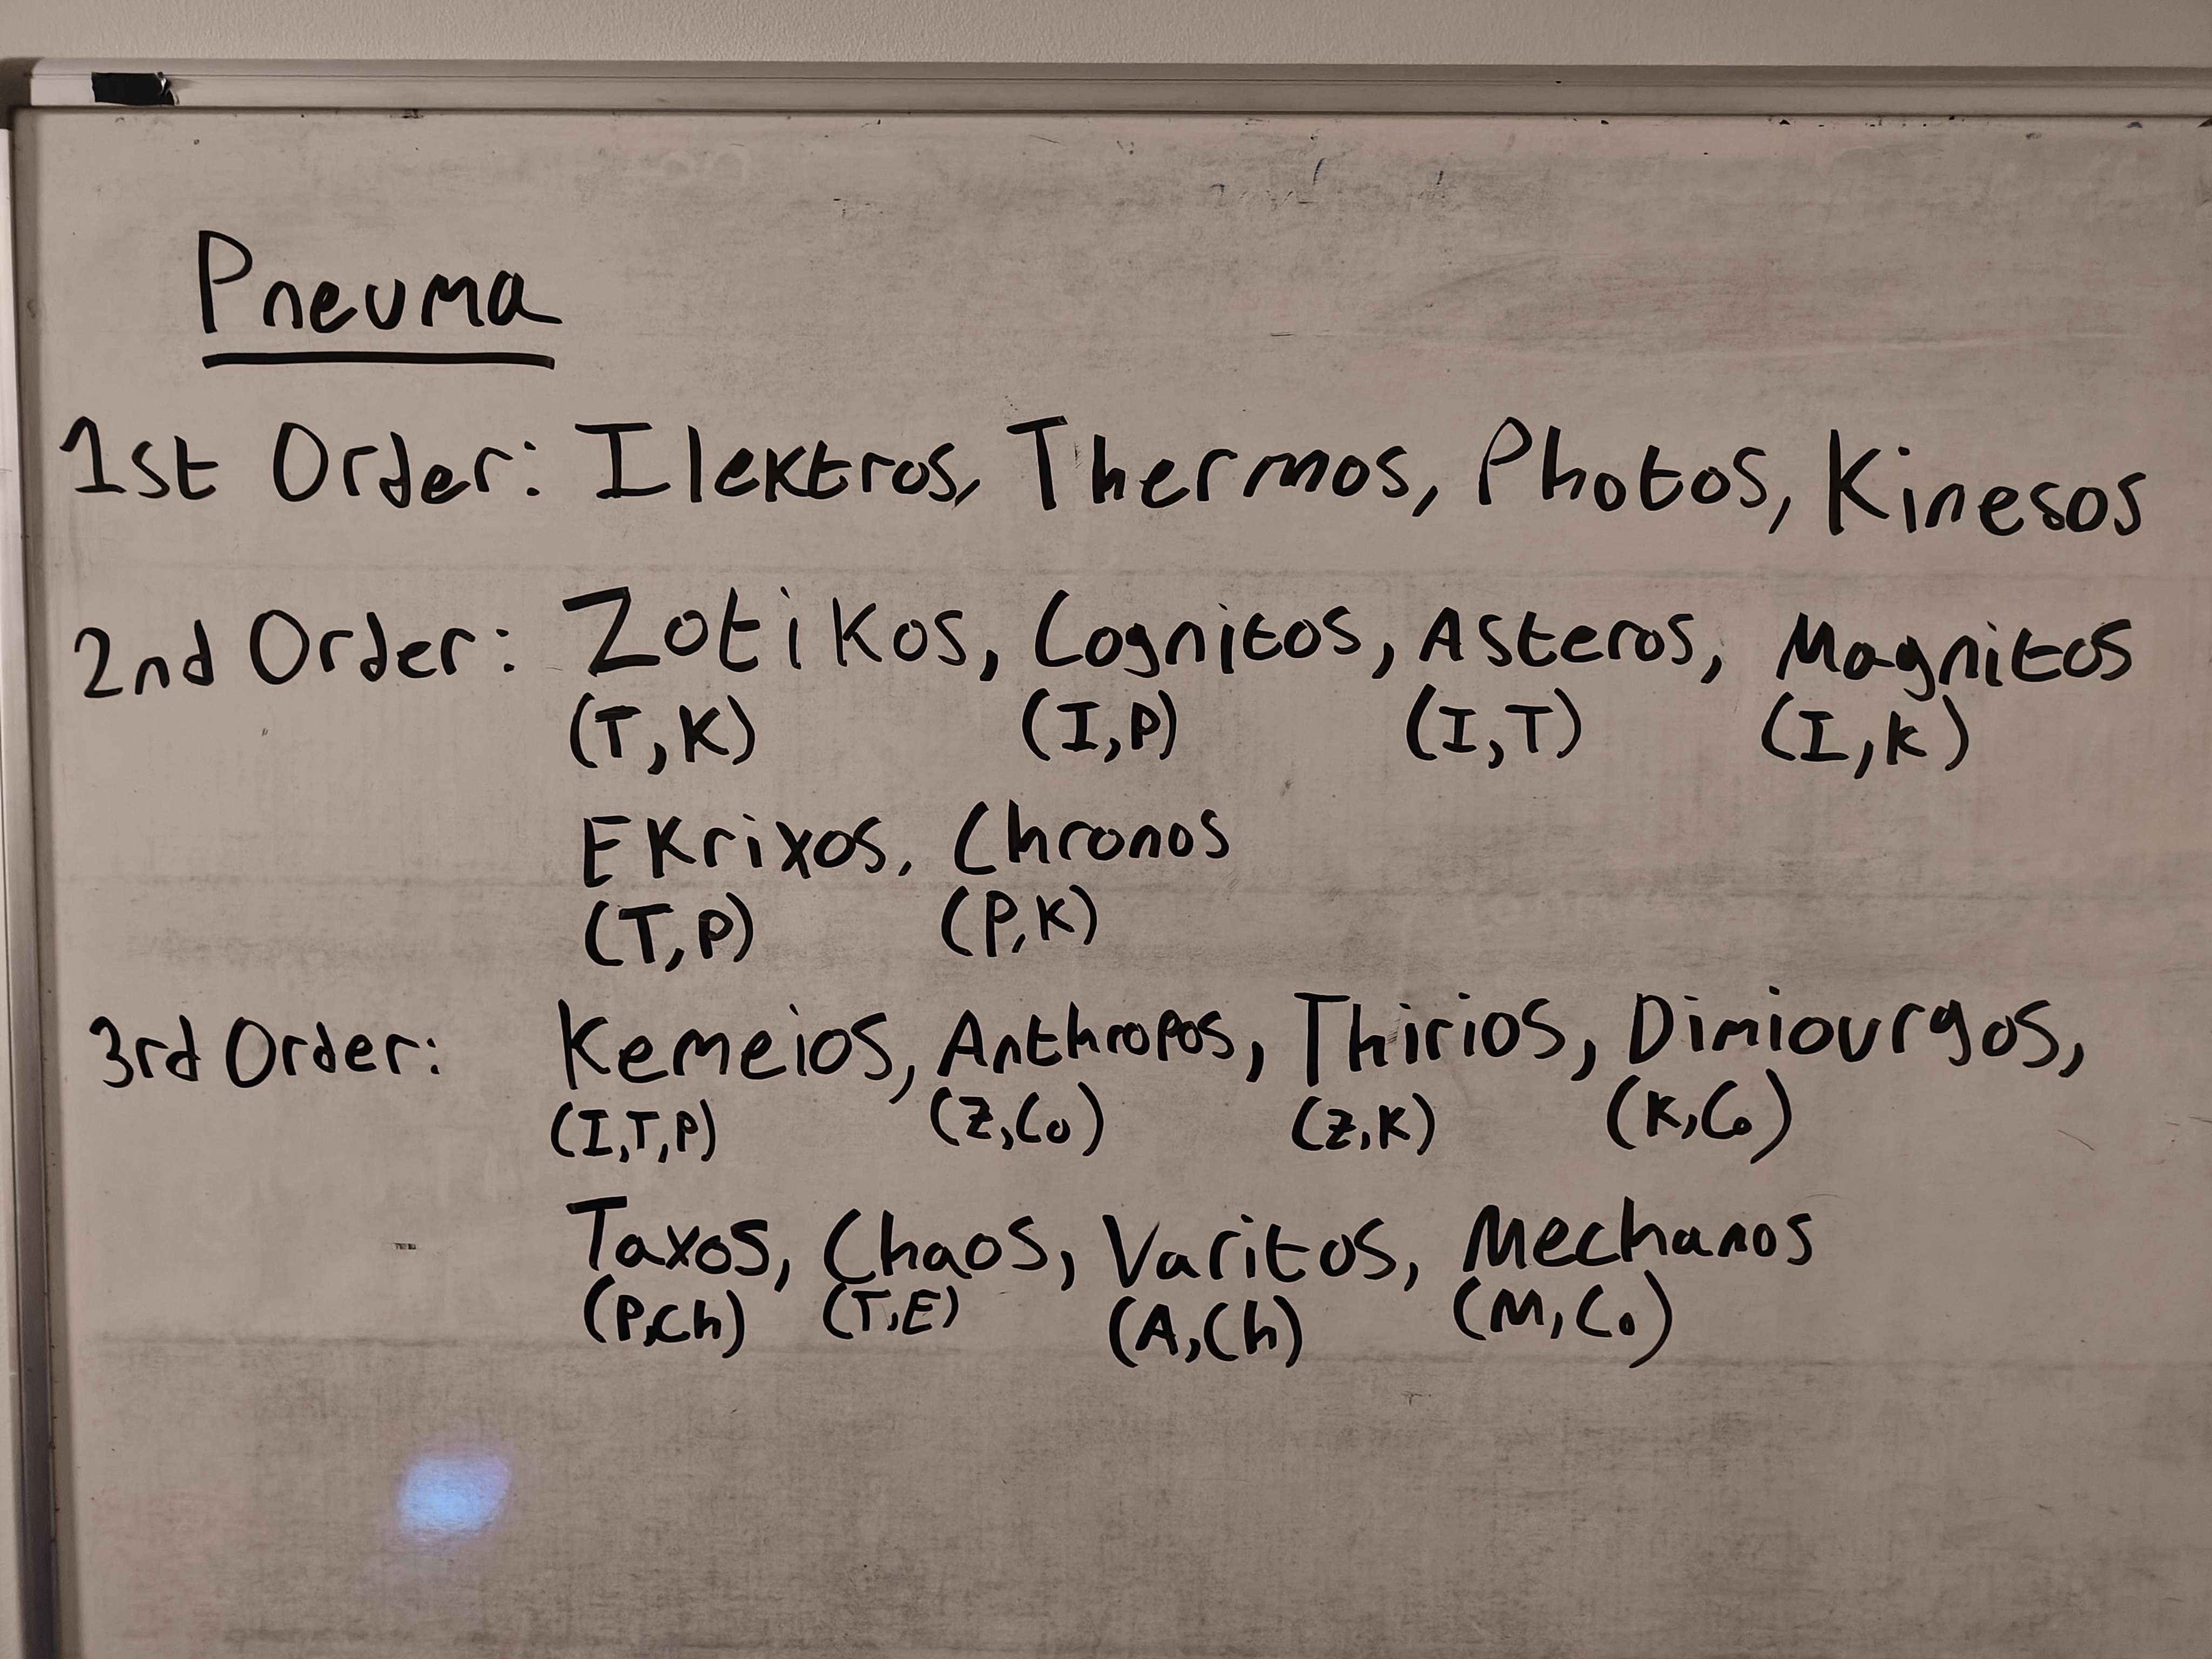 Pneuma
1st Order: Ilektros, Thermos, Photos, Kinesos
2nd Order: Zotikos, Cognitos, Asteros, Magnitos
(T,K) (I,P) (I,T) (I,K)
Ekrixos, Chronos
(T,P) (P,K)
3rd Order: Kemeios, Anthropos, Thirios, Dimiourgos,
(I,T,P) (Z,Co) (Z,K) (K,Co)
Taxos, Chaos, Varitos, Mechanos
(P,Ch) (T,E) (A,Ch) (M,Co)